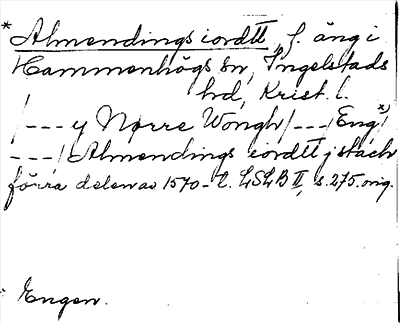 * Almendings iordtt, f. äng i
Hammenhögs sn, Ingelstads
hd, Krist. l.
/--- y Nørre Wongh/---/Eng*)/
---/Almendings iordtt j stach
förra delen av 1570-t. LSLB II, s. 275. orig.
* Engen.